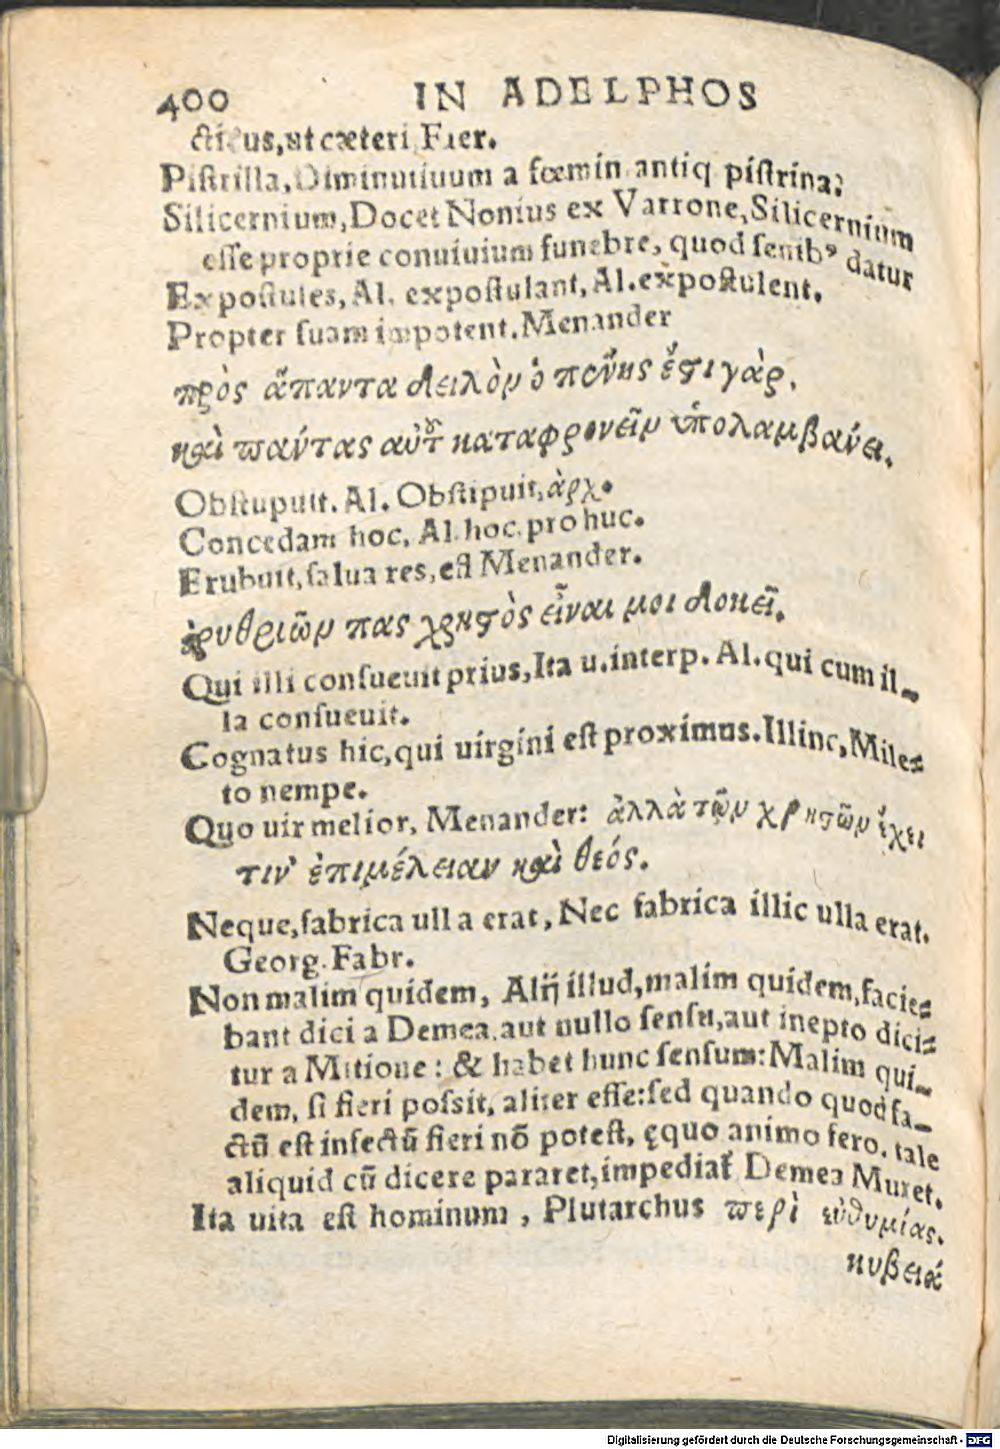 400 IN ADELPHOS
cticus, ut cæteri Fier.
Pistrilla, Diminutiuum a fœmin antiq pistrina;
Silicernium, Docet Nonius ex Varrone, Silicernium
esse proprie conuiuium funebre, quod senibꝰ datur
Expostules, Al. expostulant, Al. expostulent.
Propter suam impotent. Menander
πρὸς ἅπαντα δειλὸν ὁ πένης ἐστι γὰρ.
καὶ πάντας αὐτ͂ καταφρονεῖν ὑπολαμβάνει.
Obstupuit. Al. Obstipuit, ἀρχ.
Concedam hoc, Al. hoc. pro huc.
Erubuit, salua res, est Menander.
ἐρυθριῶν πας χρηστὸς εἶναι μοι δοκεῖ.
Qui illi consueuit prius, Ita u. interp. Al. qui cum il-
la consueuit.
Cognatus hic, qui uirgini est proximus. Illinc, Mile-
to nempe.
Quo uir melior, Menander: ἀλλὰ τῶν χρηστῶν ἔχει
τιν' ἐπιμέλειαν καὶ θεός.
Neque, fabrica ulla erat, Nec fabrica illic ulla erat.
Georg. Fabr.
Non malim quidem, Alij illud, malim quidem, facie-
bant dici a Demea. aut nullo sensu, aut inepto dici-
tur a Mitione: & habet hunc sensum: Malim qui-
dem, si fieri possit, aliter esse: sed quando quod fa-
ctũ est infectũ fieri nõ potest, ęquo animo fero. tale
aliquid cũ dicere pararet, impediat᷑ Demea Muret.
Ita uita est hominum, Plutarchus περὶ εὐθυμίας.
κυβειά
Digitalisierung gefördert durch die Deutsche Forschungsgemeinschaft - DFG